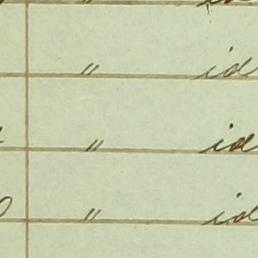 "
" id
" id
" id